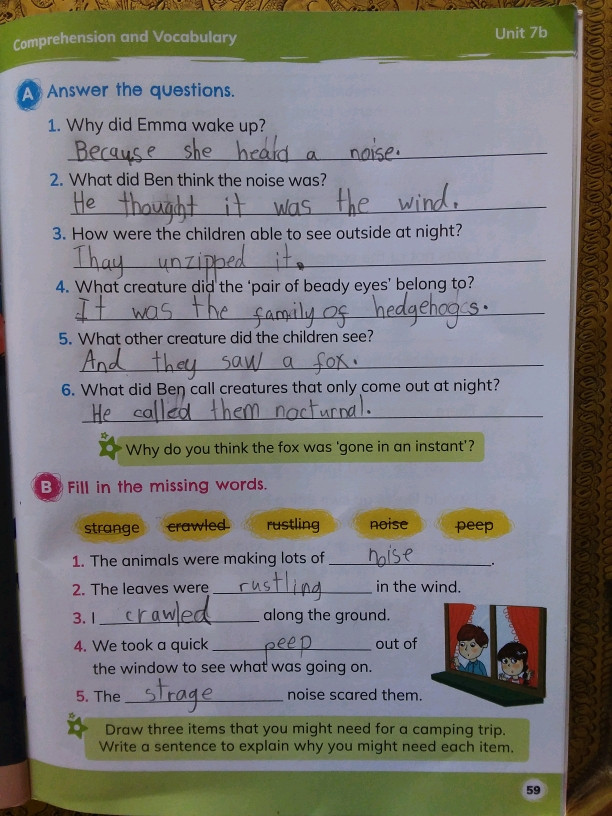 Comprehension and Vocabulary
Unit 7b
A Answer the questions.
1. Why did Emma wake up?
Because she heard a noise.
2. What did Ben think the noise was?
He thought it was the wind.
3. How were the children able to see outside at night?
Thay unzipped it.
4. What creature did the ‘pair of beady eyes’ belong to?
It was the family of hedgehogs.
5. What other creature did the children see?
And they saw a fox.
6. What did Ben call creatures that only come out at night?
He called them nocturnal.
Why do you think the fox was ‘gone in an instant’?
B Fill in the missing words.
strange crawled rustling noise peep
1. The animals were making lots of noise.
2. The leaves were rustling in the wind.
3. I crawled along the ground.
4. We took a quick peep out of
the window to see what was going on.
5. The strage noise scared them.
Draw three items that you might need for a camping trip.
Write a sentence to explain why you might need each item.
59